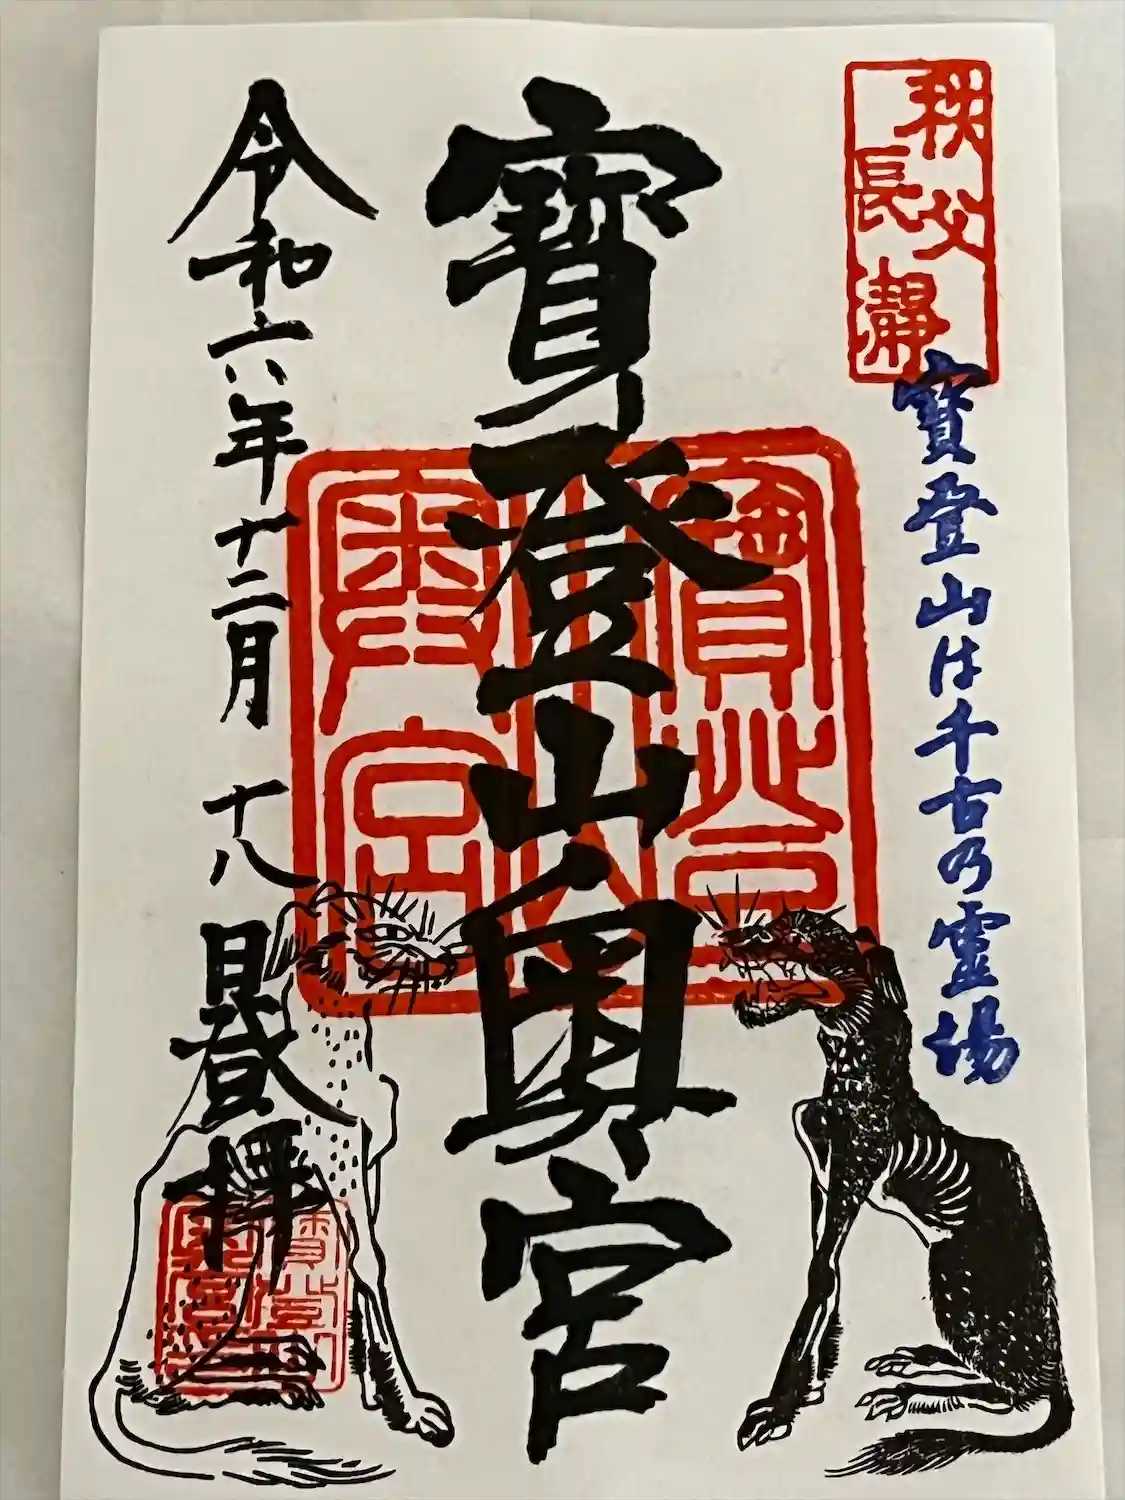 秩父
長瀞
寶登山は千古乃霊場
寶登山奥宮
寶登山
奥宮
令和六年十二月十八日登拝